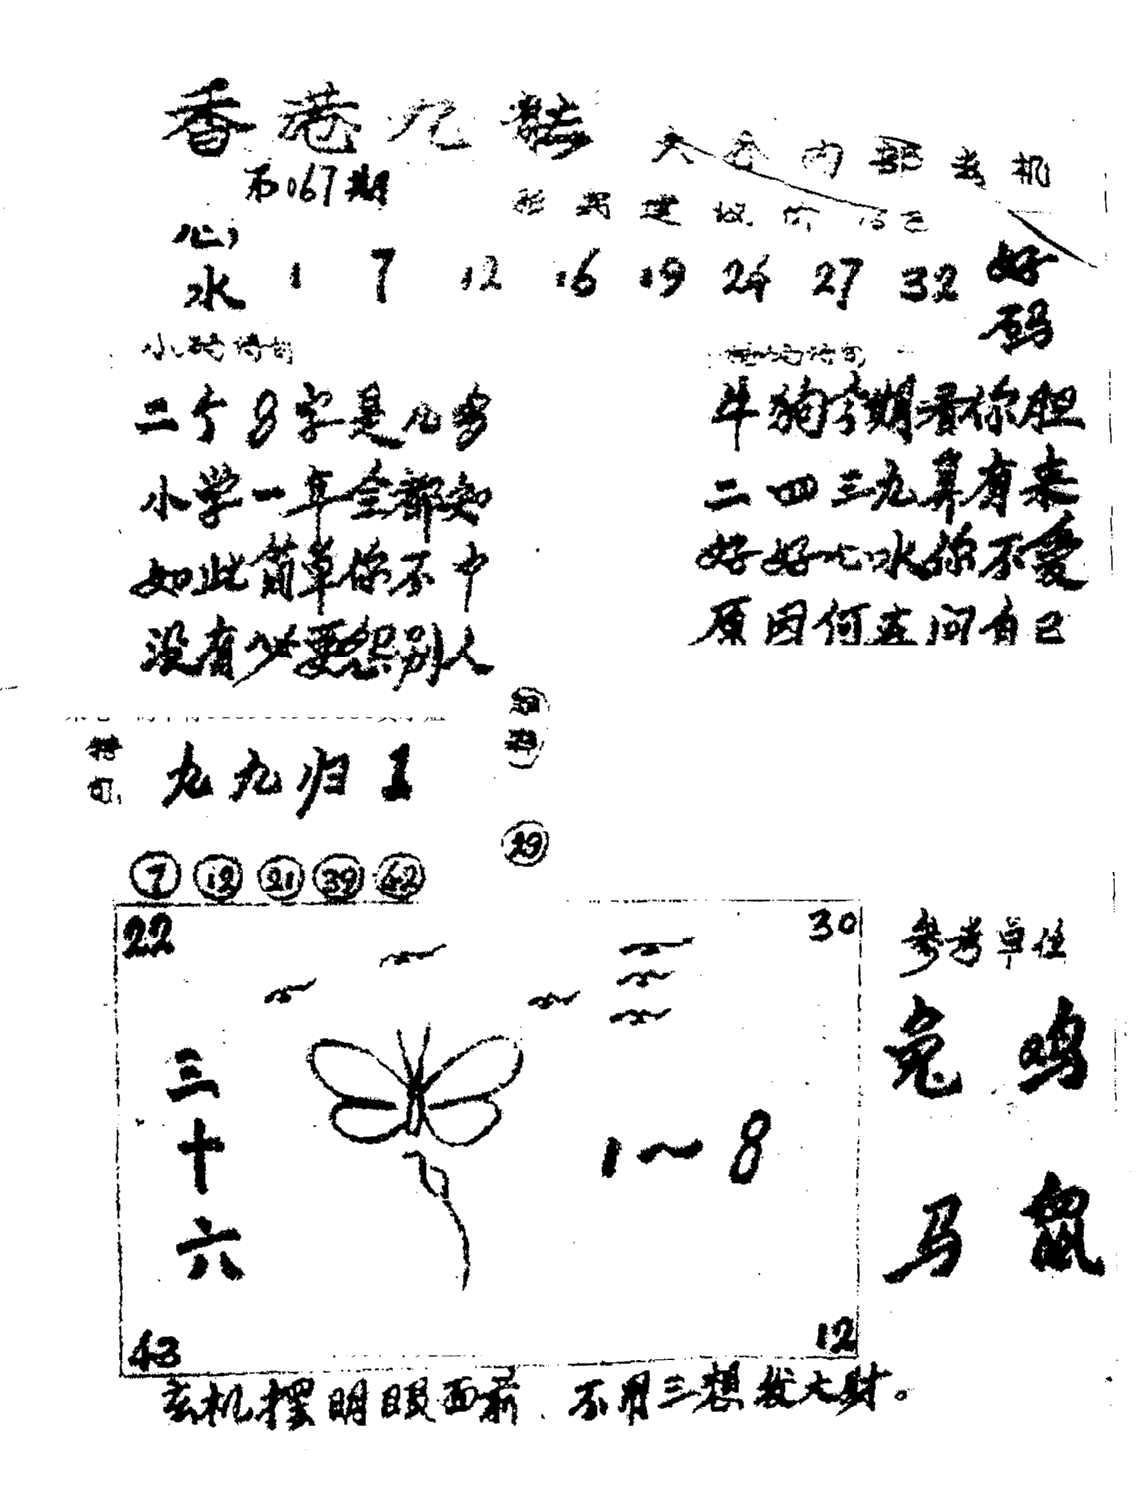 香港九龙
第067期
内部玄机
心水 1 7 12 16 19 24 27 32 好码
二个8字是几多
小学一年全都知
如此简单你不中
没有必要怨别人
牛狗今期看你胆
二四三九算有来
好好心水你不爱
原因何在问自己
特
九九归1
29
7 12 21 39 42
22
30
三十六
1～8
43
12
参考单位
兔 鸡
马 鼠
玄机摆明眼面前 不用三想发大财。